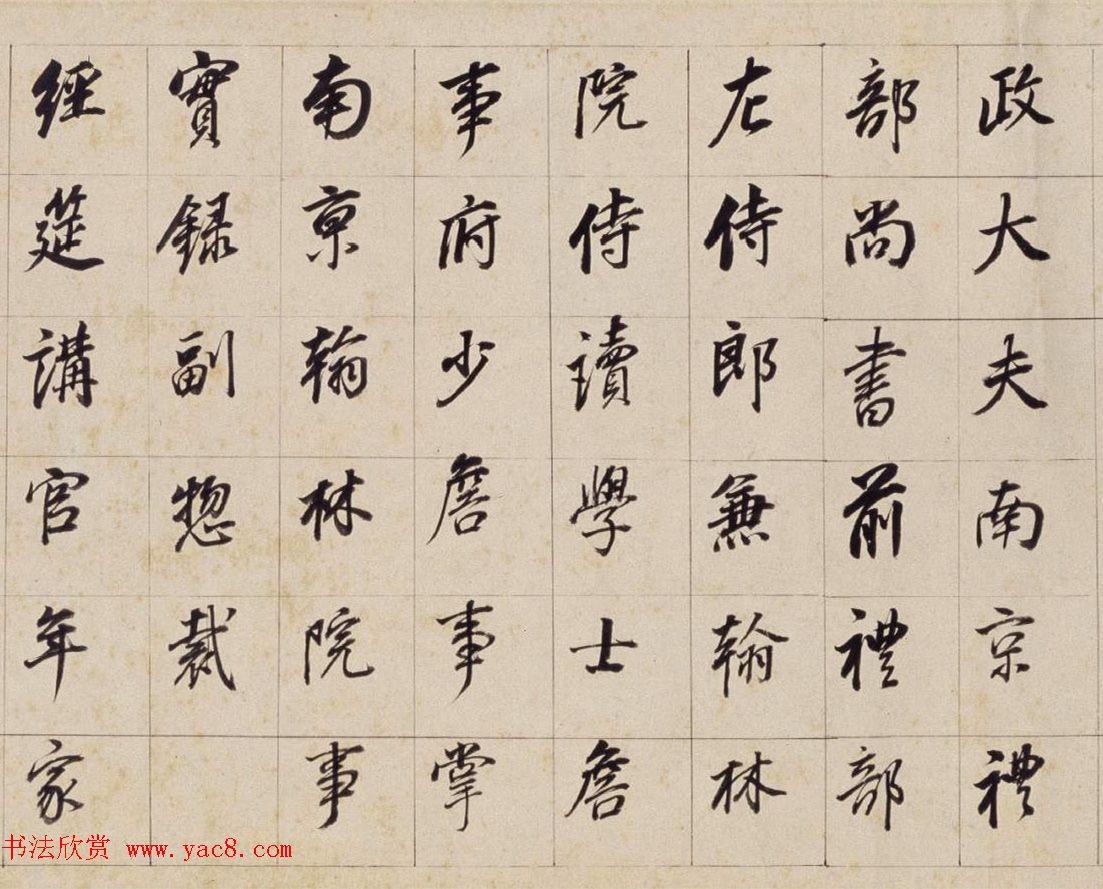 政大夫南京禮
部尚書前禮部
左侍郎兼翰林
院侍讀學士詹
事府少詹事掌
南京翰林院事
實錄副惣裁
經筵講官年家
书法欣赏 www.yac8.com